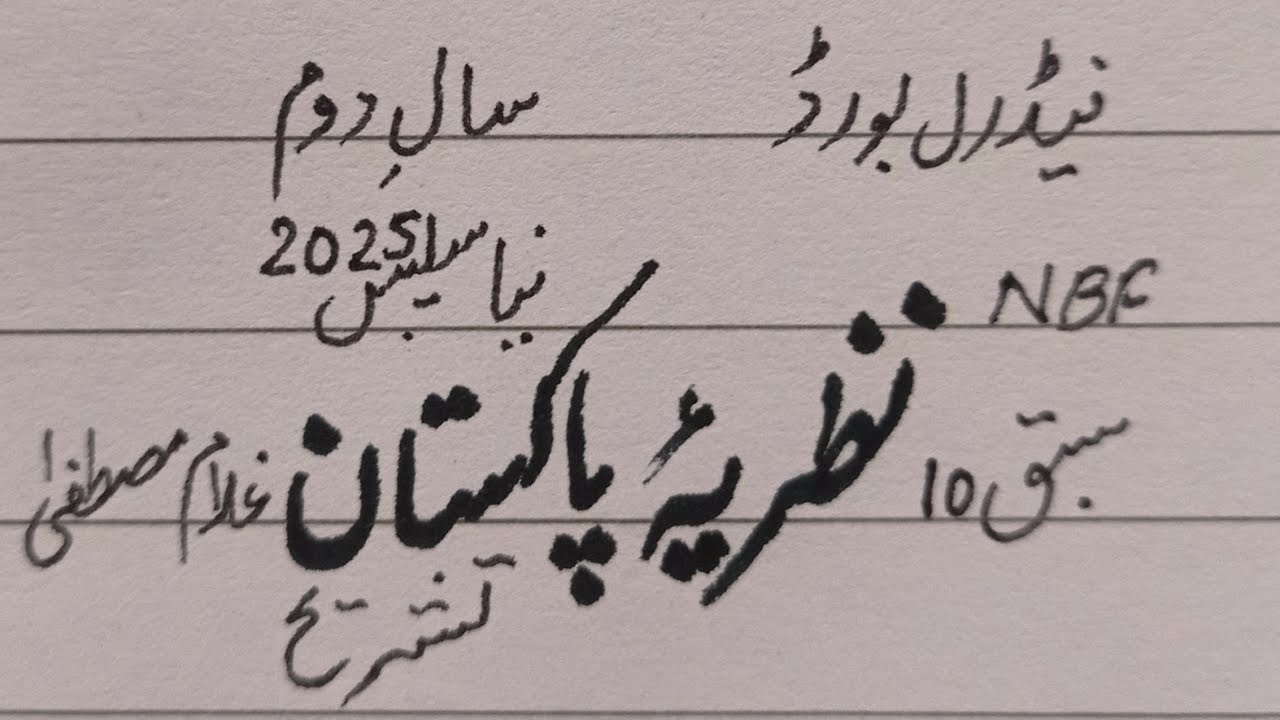 فیڈرل بورڈ سالِ دوم
NBF نیا سلیبس 2025
سبق 10 نظریۂ پاکستان غلام مصطفیٰ
تشریح